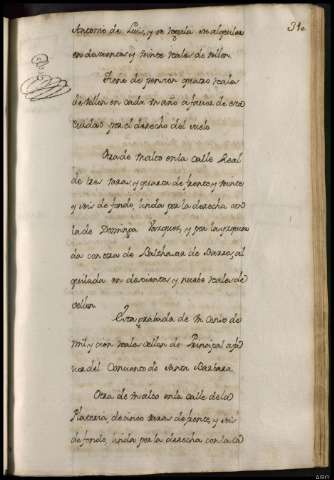 31o
Antonio de Luis, y se regula en alquiler
en doscientos y veinte reales de vellon.
Tiene de pension quatro reales
de vellon en cada un año a favor de esta
ciudad por el derecho del suelo
Otra de en alto en la calle Real
de tres varas y quarta de frente y veinte
y seis de fondo, linda por la derecha con
la de Dominga Vazquez, y por la izquierda
da con otra de Balthasar de Barros, al
quilada en doscientos y nuebe reales de
vellon
Esta grabada de un censo de
mil, y cien reales vellon de Principal a fa
vor del Convento de Santa Barbara
Otra de en alto en la calle de la
Platteria, de cinco varas de frente, y seis
de fondo, linda por la derecha con la ca